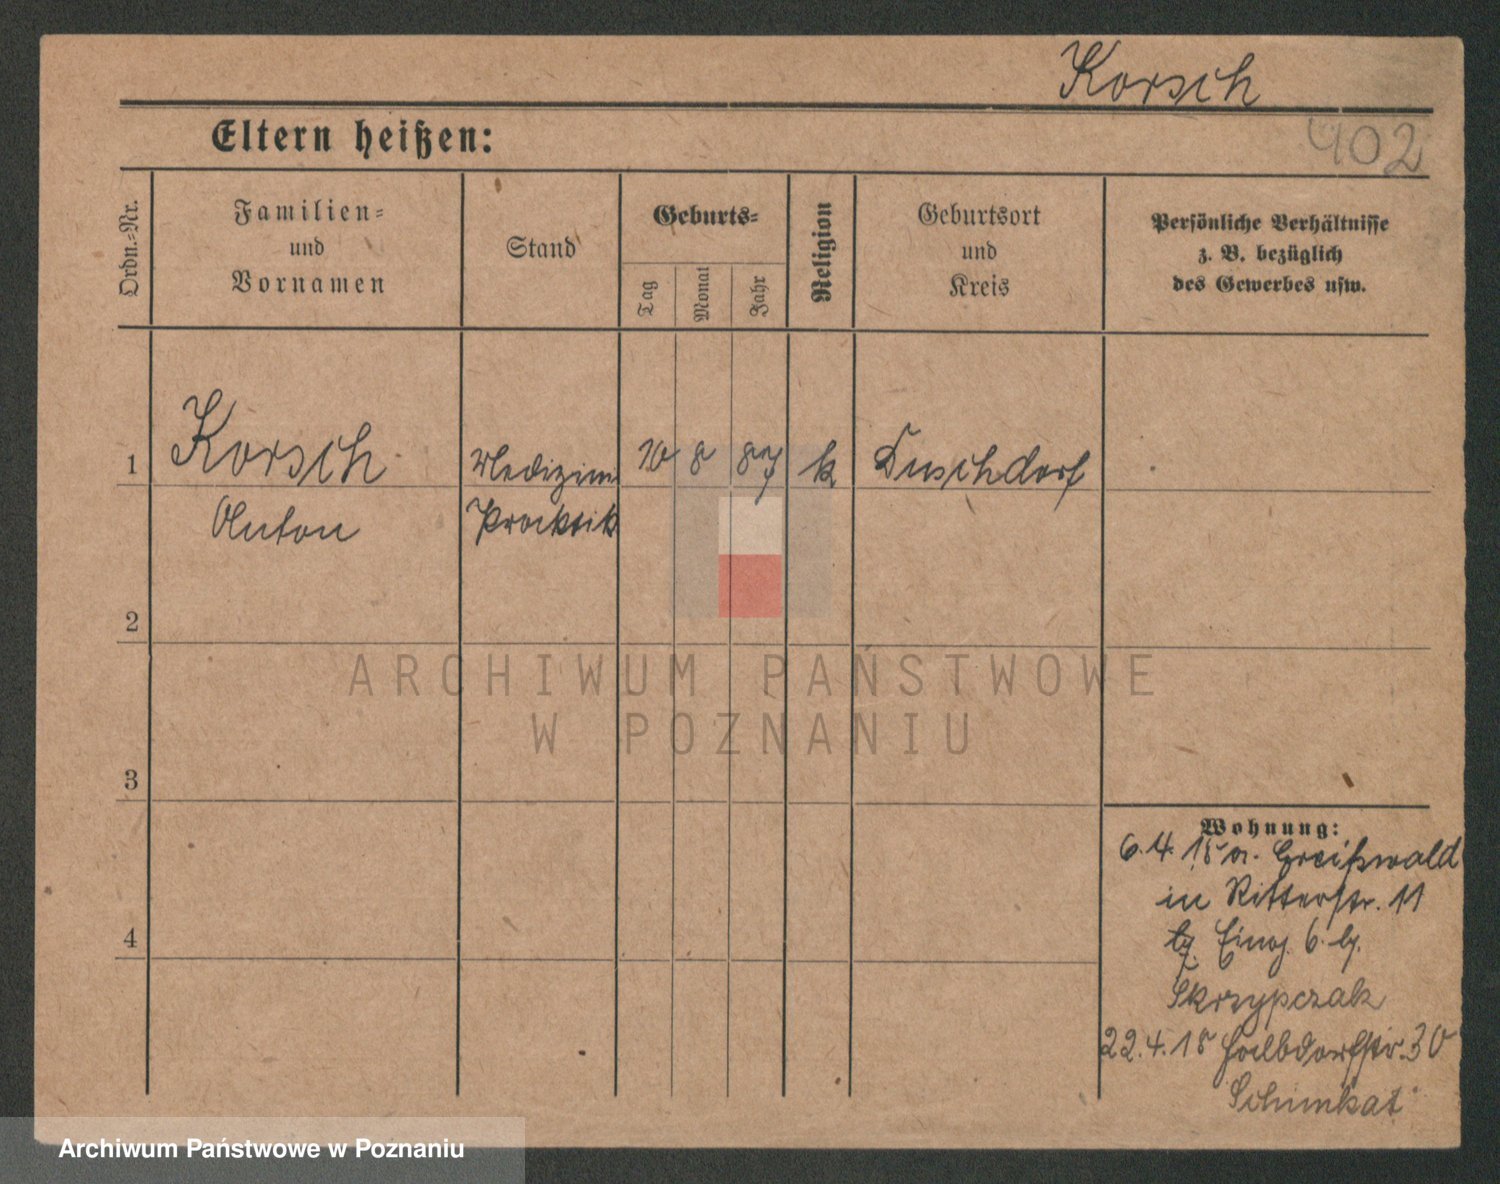 Korsch
402
Eltern heißen:
Ordn.-Nr.
Familien-
und
Vornamen
Stand
Geburts-
Tag
Monat
Jahr
Religion
Geburtsort
und
Kreis
Persönliche Verhältnisse
z. B. bezüglich
des Gewerbes usw.
1
Korsch
Medizin
10
8
87
k
Duschdorf
Anton
Praktik
2
3
4
Wohnung:
6.4.18 a. Greifswald
in Ritterstr. 11
Eing. 6.
Skrzypczak
22.4.18 Halbdorfstr. 30
Schimkat
ARCHIWUM PAŃSTWOWE
W POZNANIU
Archiwum Państwowe w Poznaniu